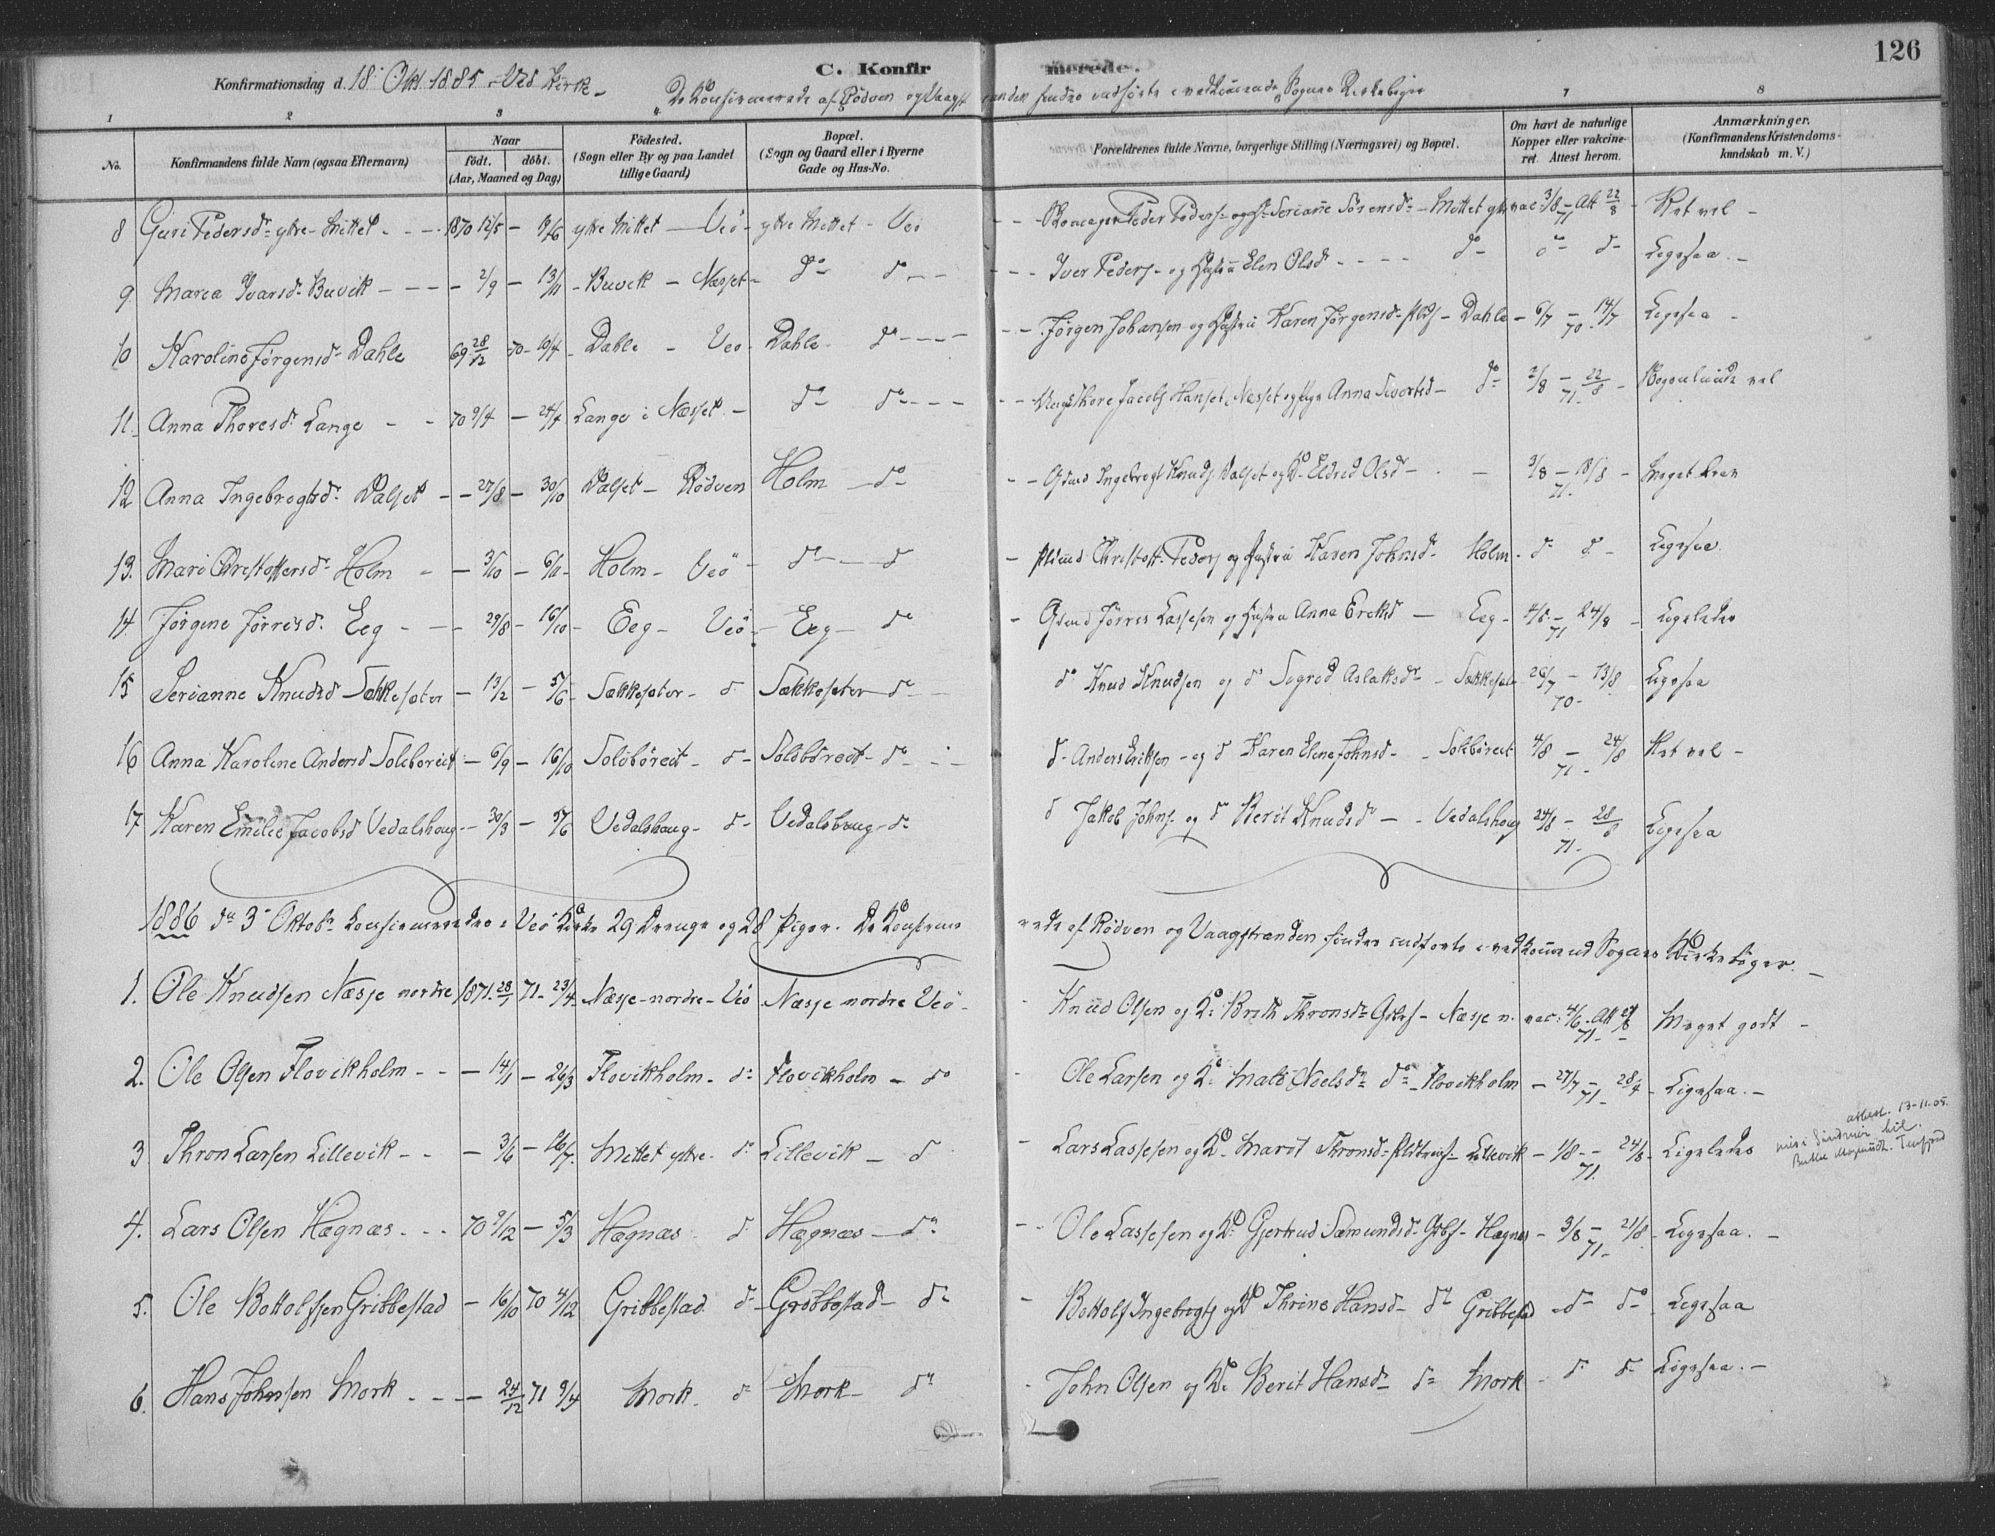 126
C. Konfirmerede.
Konfirmationsdag d. 18 Okt. 1885. Veö Kirke -
De Konfirmerede af Rödven og Vaagstranden findes indførte i vedkommende Sognes Kirkebøger
1 2 3 4 7 8
No. Konfirmandens fulde Navn (ogsaa Efternavn) Naar födt. döbt. (Aar, Maaned og Dag) Födested. (Sogn eller By og paa Landet tillige Gaard) Bopæl. (Sogn og Gaard eller i Byerne Gade og Hus-No. Forældrenes fulde Navne, borgerlige Stilling (Næringsvei) og Bopæl. Om havt de naturlige Kopper eller vakcineret. Attest herom. Anmærkninger. (Konfirmandens Kristendomskundskab m. V.)
8 Guri Pedersdr ytre Mittet - - 1870 12/5 - 9/6 ytre Mittet - Veö - ytre Mittet - Veö - - Peder Peders og Serianne Sörensdr - Mittet ytre vac. 3/8 71 - Att 22/8 - Ret vel -
9 Maria Ivarsd. Buvik - - - 2/9 - 13/11 - Buvik - Næsset - do do - - - - Iver Peders - og Hustru Elen Olsd - - - - do - do do - Ligesaa. -
10 Karoline Jørgensd. Dahle 69 28/12 70 - 10/4 - Dahle - Veö - Dahle - do - - - - - Jørgen Johansen og Hustru Karen Jørgensd - Dahle - 6/7 - 70 14/7 Ligesaa -
11. Anna Thoresd. Lange - - 70 9/4 - 24/7 Lange i Næsset - do do - - - - - Jacob Hanset Næsset og Anna Sivertsd - do - 2/8 - 71. 22/8 - Nogenlunde vel
12 Anna Ingebrigtsd. Dalset - - 27/8 - 30/10 Dalset - Rödven Holm - do - - Gbmd Ingebrigt Knuds. Dalset og K. Eldrid Olsd - - 3/8 - 71. 18/8 - Meget
13. Mari Christoffersd. Holm - - 3/10 - 6/11 - Holm - Veö - do - do - Christoff. Peders og Hustru Karen Johnsd. Holm - do do - Ligesaa.
14 Jørgine Jørrisd. Eeg - - - 29/8 - 16/10 - Eeg - Veö - Eeg - do - Gbmd Jørris Lassesen og Hustru Anna Eriksd - Eeg - 4/8 - 71 24/8 - Ligeledes
15 Serianne Knudsd Sækkesæter - 13/2 - 5/6 - Sækkesæter - do Sækkesæter - do - do Knud Knudsen og do Sigrid Aslaksdr - Sækkesæt. 26/7 - 70 - 13/8 Ligesaa
16 Anna Karoline Andersd Soleböreit - 6/9 - 16/10 Soleböreit - do - Soleböreit - do - - do. Anders Eriksen - og do Karen Elene Johnsd - - Soleböreit 4/8 - 71 - 24/8 Ret vel -
17 Karen Emilie Jacobsd Vedalshaug - 30/3 - 5/6 Vedalshaug - do - Vedalshaug - do - do Jakob Johns. og do Berit Knudsd - - Vedalshaug 24/8 - 71 - 28/8 Ligesaa
1886 dn 3 Oktobr Konfirmerede i Veö Kirke 29 Drenge og 28 Piger. De Konfirmerede af Rödven og Vaagstranden findes indførte i vedkommend Sognes Kirkebøger. -
1. Ole Knudsen Næsje nordre 1871. 28/1 71 - 23/4 - Næsje - nordre - Veö Næsje nordre Veö - - Knud Olsen og K. Brith Thronsdr Gbf - Næsje n. vac: 4/6 71 - Att Meget godt -
2. Ole Olsen Flovikholm - - - 14/1 - 26/3 Flovikholm - do Flovikholm - do - Ole Larsen og K. Malé Noelsdr do - Flovikholm - 27/7 - 71 - 28/4 - Ligesaa. -
3 Thron Larsen Lillevik - - - 3/6 - 16/7. Mittet ytre. do Lillevik - do - Lars Lassesen og K. Marit Thronsd - - Lillevik - 1/8 - - 71. 24/8 - Ligeledes attest. 13-11-05.
4. Lars Olsen Hegnæs - - - 70 9/12 - 5/3 Hegnæs - do Hegnæs - do - - Ole Lassesen og K. Gjertrud Sæmundsd - Gbf - Hegnæs - 3/8 - 71 - 21/8 - Ligesaa. -
5. Ole Bottolfsen Gribbestad - 16/10 70 4/12 Gribbestad do - Gribbestad - do - Bottolf Ingebrigts og K Thrine Hansd - do Gribbestad - do do - Ligesaa
6. Hans Johnsen Mork - - - - 24/12 71 9/4 Mork. do Mork - do - John Olsen og K. Berit Hansd - do Mork - do do - Ligesaa. -